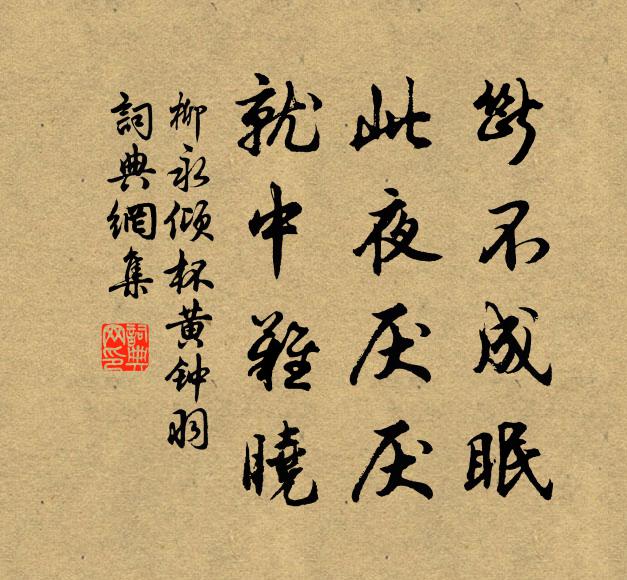 断不成眠
此夜厌厌
就中難曉
柳永倾杯黄钟羽
詞典網集
詞典網印